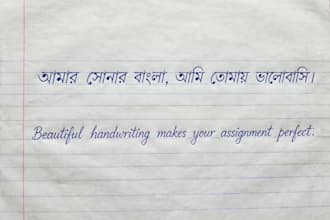 আমার সোনার বাংলা, আমি তোমায় ভালোবাসি।
Beautiful handwriting makes your assignment perfect.